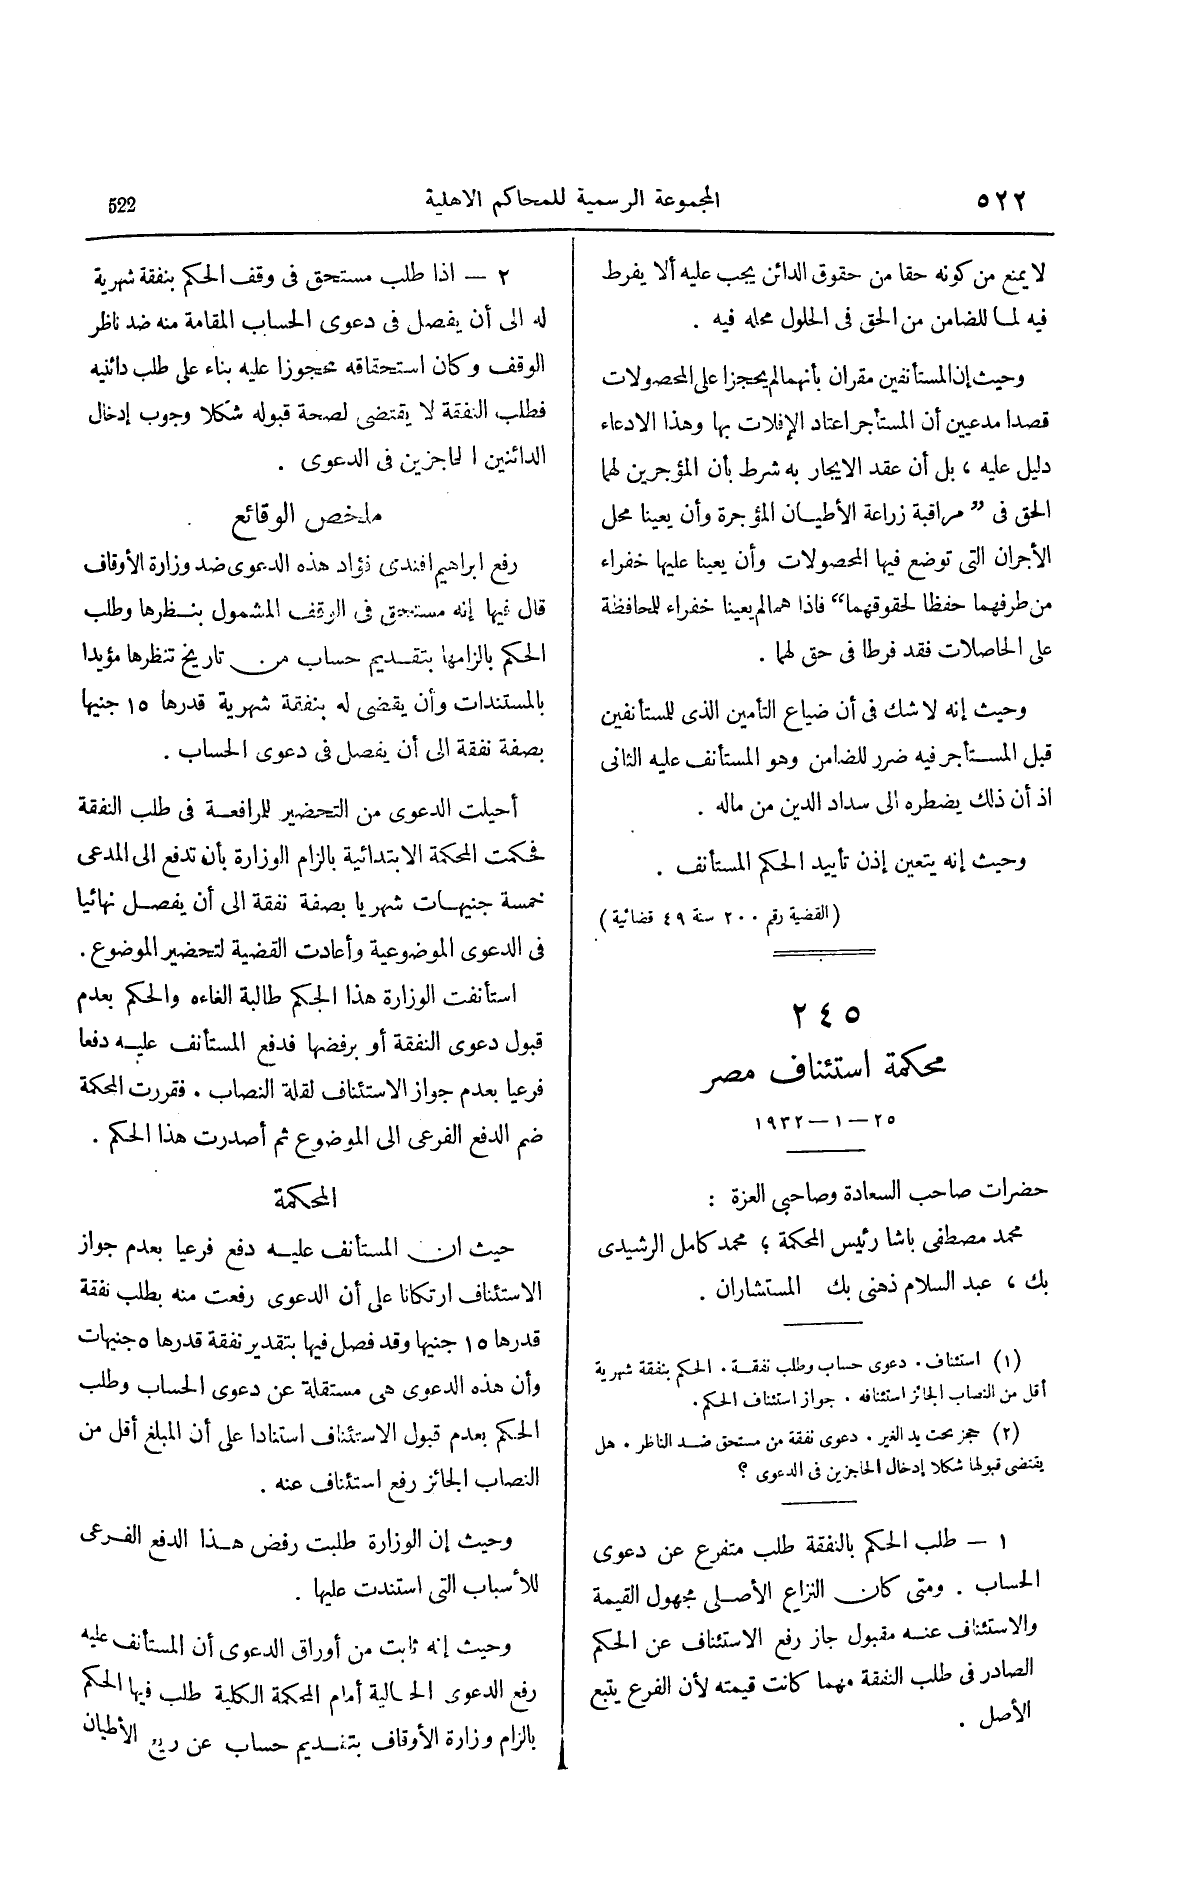 ٥٢٢
المجموعة الرسمية للمحاكم الاهلية
522
لا يمنع من كونه حقا من حقوق الدائن يجب عليه ألا يفرط
فيه لما للضامن من الحق فى الحلول محله فيه .
وحيث إن المستأنفين مقران بأنهما لم يحجزا على المحصولات
قصدا مدعيين أن المستأجر اعتاد الإفلات بها وهذا الادعاء
دليل عليه ، بل أن عقد الايجار به شرط بأن المؤجرين لهما
الحق فى ” مراقبة زراعة الأطيان المؤجرة وأن يعينا محل
الأجران التى توضع فيها المحصولات وأن يعينا عليها خفراء
من طرفهما حفظا لحقوقهما“ فاذا هما لم يعينا خفراء للمحافظة
على الحاصلات فقد فرطا فى حق لهما .
وحيث إنه لا شك فى أن ضياع التأمين الذى للمستأنفين
قبل المستأجر فيه ضرر للضامن وهو المستأنف عليه الثانى
اذ أن ذلك يضطره الى سداد الدين من ماله .
وحيث إنه يتعين إذن تأييد الحكم المستأنف .
(القضية رقم ٢٠٠ سنة ٤٩ قضائية)
٢٤٥
محكمة استئناف مصر
٢٥ — ١ — ١٩٣٢
حضرات صاحب السعادة وصاحبى العزة :
محمد مصطفى باشا رئيس المحكمة ؛ محمد كامل الرشيدى
بك ، عبد السلام ذهنى بك المستشاران .
(١) استئناف . دعوى حساب وطلب نفقة . الحكم بنفقة شهرية
أقل من النصاب الجائز استئنافه . جواز استئناف الحكم .
(٢) حجز تحت يد الغير . دعوى نفقة من مستحق ضد الناظر . هل
يقتضى قبولها شكلا إدخال الحاجزين فى الدعوى ؟
١ — طلب الحكم بالنفقة طلب متفرع عن دعوى
الحساب . ومتى كان النزاع الأصلى مجهول القيمة
والاستئناف عنه مقبول جاز رفع الاستئناف عن الحكم
الصادر فى طلب النفقة مهما كانت قيمته لأن الفرع يتبع
الأصل .
٢ — اذا طلب مستحق فى وقف الحكم بنفقة شهرية
له الى أن يفصل فى دعوى الحساب المقامة منه ضد ناظر
الوقف وكان استحقاقه محجوزا عليه بناء على طلب دائنيه
فطلب النفقة لا يقتضى لصحة قبوله شكلا وجوب إدخال
الدائنين الحاجزين فى الدعوى .
ملخص الوقائع
رفع ابراهيم افندى فؤاد هذه الدعوى ضد وزارة الأوقاف
قال فيها إنه مستحق فى الوقف المشمول بنظرها وطلب
الحكم بالزامها بتقديم حساب من تاريخ تنظرها مؤيدا
بالمستندات وأن يقضى له بنفقة شهرية قدرها ١٥ جنيها
بصفة نفقة الى أن يفصل فى دعوى الحساب .
أحيلت الدعوى من التحضير للمرافعة فى طلب النفقة
فحكمت المحكمة الابتدائية بالزام الوزارة بأن تدفع الى المدعى
خمسة جنيهات شهريا بصفة نفقة الى أن يفصل نهائيا
فى الدعوى الموضوعية وأعادت القضية لتحضير الموضوع .
استأنفت الوزارة هذا الحكم طالبة الغاءه والحكم بعدم
قبول دعوى النفقة أو برفضها فدفع المستأنف عليه دفعا
فرعيا بعدم جواز الاستئناف لقلة النصاب . فقررت المحكمة
ضم الدفع الفرعى الى الموضوع ثم أصدرت هذا الحكم .
المحكمة
حيث ان المستأنف عليه دفع فرعيا بعدم جواز
الاستئناف ارتكانا على أن الدعوى رفعت منه بطلب نفقة
قدرها ١٥ جنيها وقد فصل فيها بتقدير نفقة قدرها ٥ جنيهات
وأن هذه الدعوى هى مستقلة عن دعوى الحساب وطلب
الحكم بعدم قبول الاستئناف استنادا على أن المبلغ أقل من
النصاب الجائز رفع استئناف عنه .
وحيث إن الوزارة طلبت رفض هذا الدفع الفرعى
للأسباب التى استندت عليها .
وحيث إنه ثابت من أوراق الدعوى أن المستأنف عليه
رفع الدعوى الحالية أمام المحكمة الكلية طلب فيها الحكم
بالزام وزارة الأوقاف بتقديم حساب عن ريع الأطيان